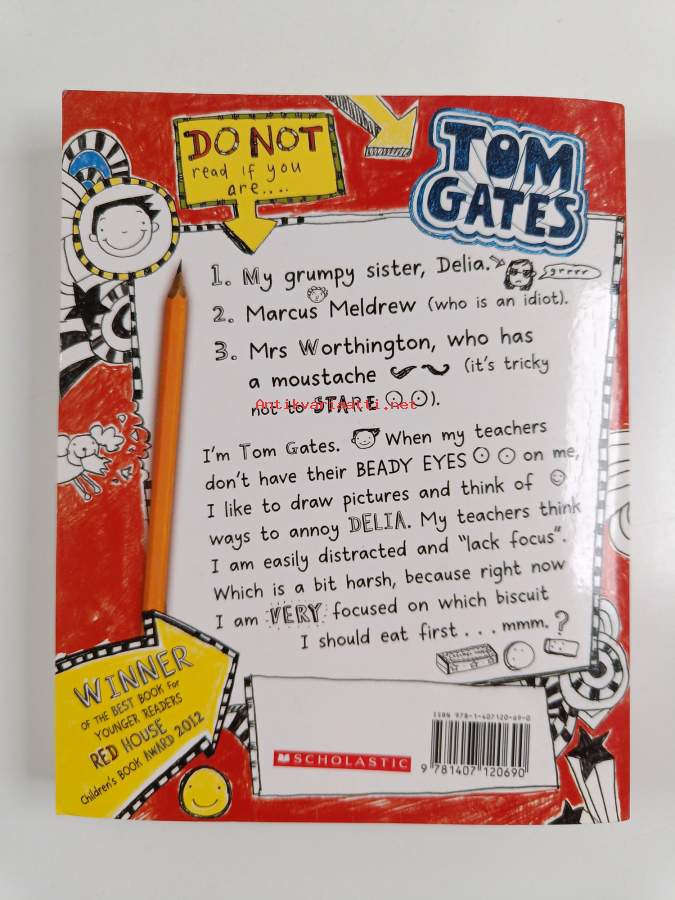 DO NOT
read if you
are....
TOM
GATES
1. My grumpy sister, Delia.
grrrr
2. Marcus Meldrew (who is an idiot).
3. Mrs Worthington, who has
a moustache (it's tricky
not to STARE).
Antikvariaatti.net
I'm Tom Gates. When my teachers
don't have their BEADY EYES on me,
I like to draw pictures and think of
ways to annoy DELIA. My teachers think
I am easily distracted and "lack focus".
Which is a bit harsh, because right now
I am VERY focused on which biscuit
I should eat first... mmm.?
WINNER
OF THE BEST BOOK FOR
YOUNGER READERS
RED HOUSE
Children's BOOK AWARD 2012
SCHOLASTIC
ISBN 978-1-407120-69-0
9 781407 120690